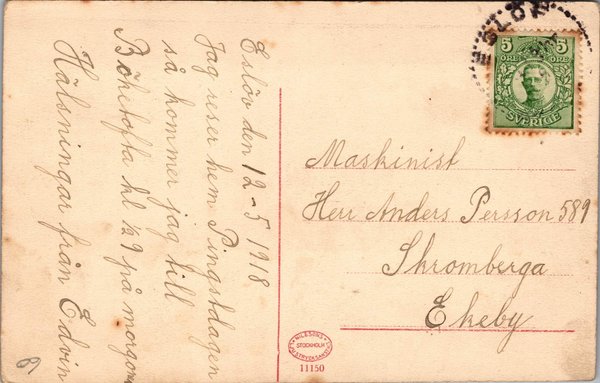 Eslöv den 12-5 1918
Jag reser hem Pingstdagen
så kommer jag till
Böketofta kl ½9 på morgonen
Hälsningar från Edvin
ESLÖV
5 5
ÖRE ÖRE
SVERIGE
Maskinist
Herr Anders Persson 589
Skromberga
Ekeby
NILSSONS
STOCKHOLM
11150